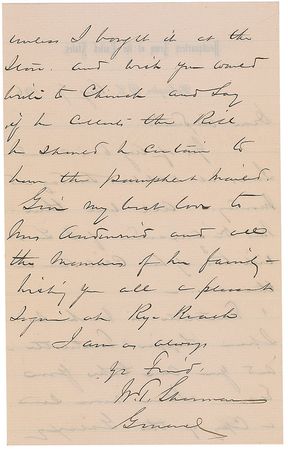 unless I bought it at the
Store. and wish you would
write to Church and Say
if he Collects the Bill
he should be Certain to
have the pamphlet mailed.
Give my best love to
Mrs Audenried and all
the Members of her family -
Wishing you all a pleasant
Sojourn at Rye Beach
I am as always
Yr Friend.
W.T. Sherman
General